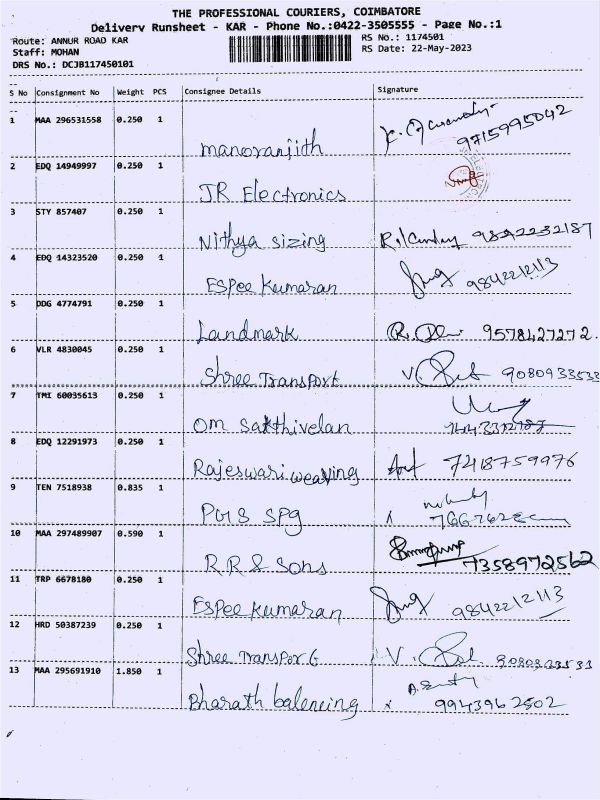 THE PROFESSIONAL COURIERS, COIMBATORE
Delivery Runsheet - KAR - Phone No.:0422-3505555 - Page No.:1
Route: ANNUR ROAD KAR
Staff: MOHAN
DRS No.: DCJB117450101
RS No.: 1174501
RS Date: 22-May-2023
S No Consignment No Weight PCS Consignee Details Signature
1 MAA 296531558 0.250 1
manoranjith 9715995042
2 EDQ 14949997 0.250 1
JR Electronics
3 STY 857407 0.250 1
Nithya sizing 9842232187
4 EDQ 14323520 0.250 1
Espee kumaran 9842212113
5 DDG 4774791 0.250 1
Landmark 9578427272.
6 VLR 4830045 0.250 1
Shree Transport 9080933533
7 TMI 60035613 0.250 1
Om Sakthivelan
8 EDQ 12291973 0.250 1
Rajeswari weaving 7418759976
9 TEN 7518938 0.835 1
PGS SPg
10 MAA 297489907 0.590 1
R.R & Sons 7358972562
11 TRP 6678180 0.250 1
Espee kumaran 9842212113
12 HRD 50387239 0.250 1
Shree Transport
13 MAA 295691910 1.850 1
Bharath balencing 9943962502